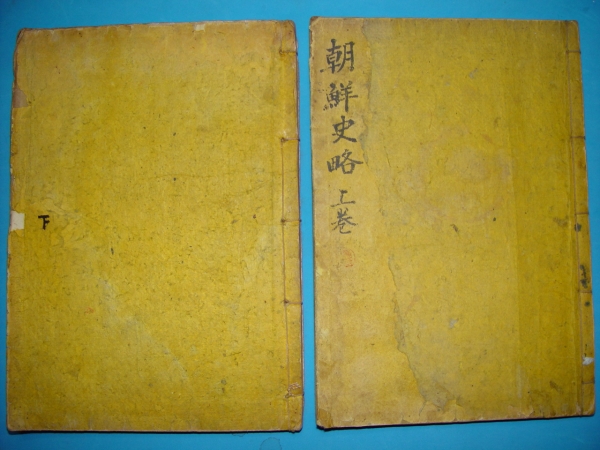 朝鮮史略 上卷
下